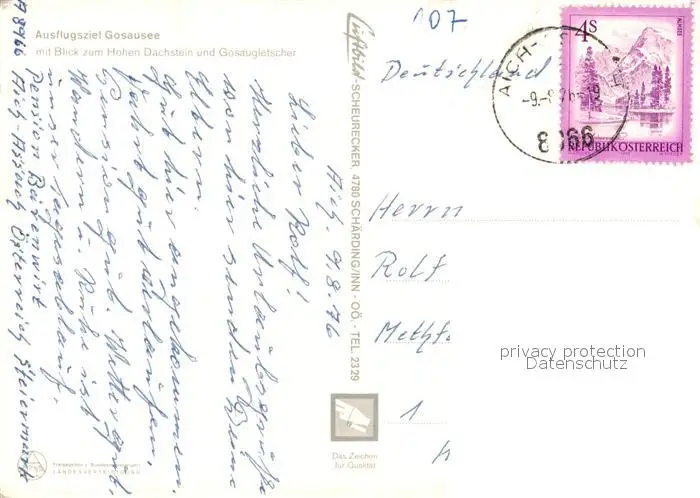 Ausflugsziel Gosausee
mit Blick zum Hohen Dachstein und Gosaugletscher
Aich. 9.8.76
Lieber Rolf!
Herzliche Urlaubsgrüße
von hier senden Deine
Eltern.
Gut hier angekommen.
Fahrt gut verlaufen.
Pension gut. Wetter gut.
Wandern u. Ruhe ist
unser Tagesablauf.
Pension Bärenwirt
A 8966 Aich-Assach Österreich Steiermark
Luftbild-SCHEURECKER, 4780 SCHÄRDING/INN - OÖ, - TEL. 2329
107
Deutschland
AICH-AS
-9.-8.76-19
8966
4S
REPUBLIK ÖSTERREICH
Herrn
Rolf
Methf.
1
privacy protection
Datenschutz
Das Zeichen
für Qualität
Freigegeben v. Bundesministerium f.
LANDESVERTEIDIGUNG